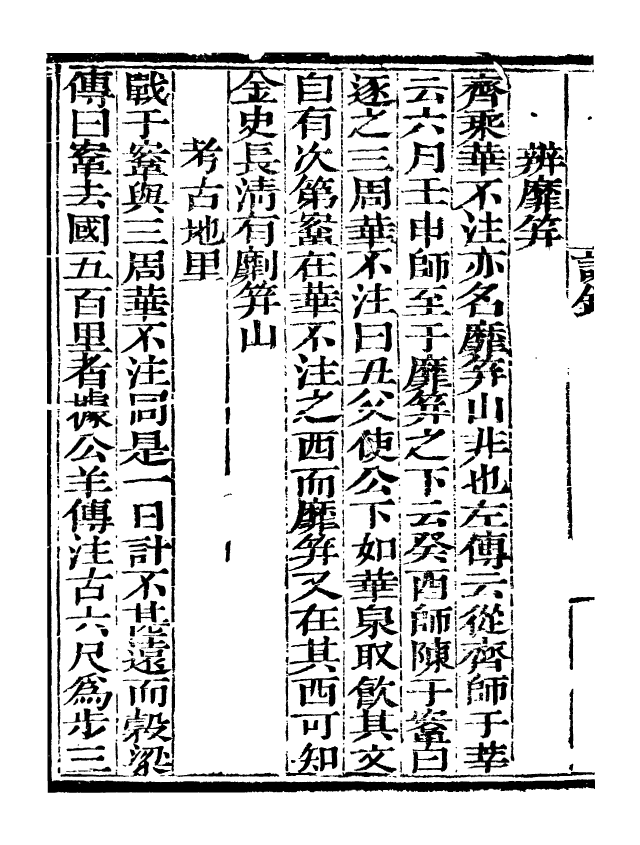 辨靡笄
齊乘華不注亦名靡笄山非也左傳云從齊師于莘
云六月壬申師至于靡笄之下云癸酉師陳于鞌曰
逐之三周華不注曰丑父使公下如華泉取飲其文
自有次第鞌在華不注之西而靡笄又在其西可知
金史長清有劘笄山
考古地里
戰于鞌與三周華不注同是一日計不甚遠而穀梁
傳曰鞌去國五百里者據公羊傳注古六尺爲步三